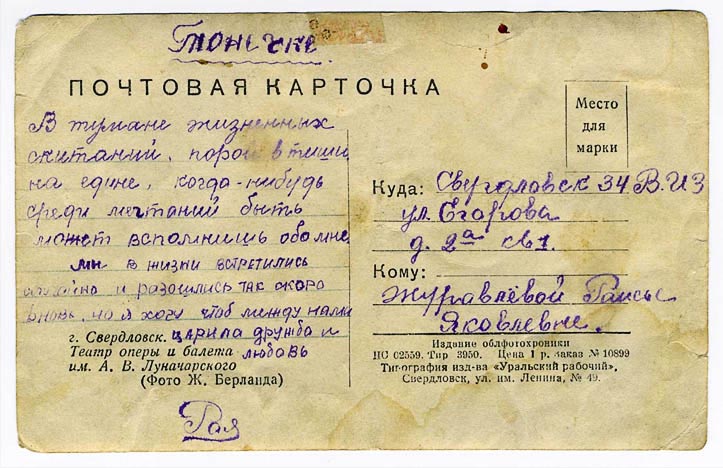 Тонечке.
ПОЧТОВАЯ КАРТОЧКА
В тумане жизненных
скитаний, порой в тиши
на едине, когда-нибудь
среди мечтаний быть
может вспомнишь обо мне
мы в жизни встретились
случайно и разошлись так скоро
вновь, но я хочу чтоб между нами
царила дружба и
любовь
г. Свердловск.
Театр оперы и балета
им. А. В. Луначарского
(Фото Ж. Берланда)
Рая
Место
для
марки
Куда: Свердловск 34 В.ИЗ
ул. Егорова
д. 2а кв 1.
Кому:
Журавлёвой Раисье
Яковлевне.
Издание облфотохроники
НС 02559. Тир 3950. Цена 1 р. Заказ № 10899
Типография изд-ва «Уральский рабочий»,
Свердловск, ул. им. Ленина, № 49.